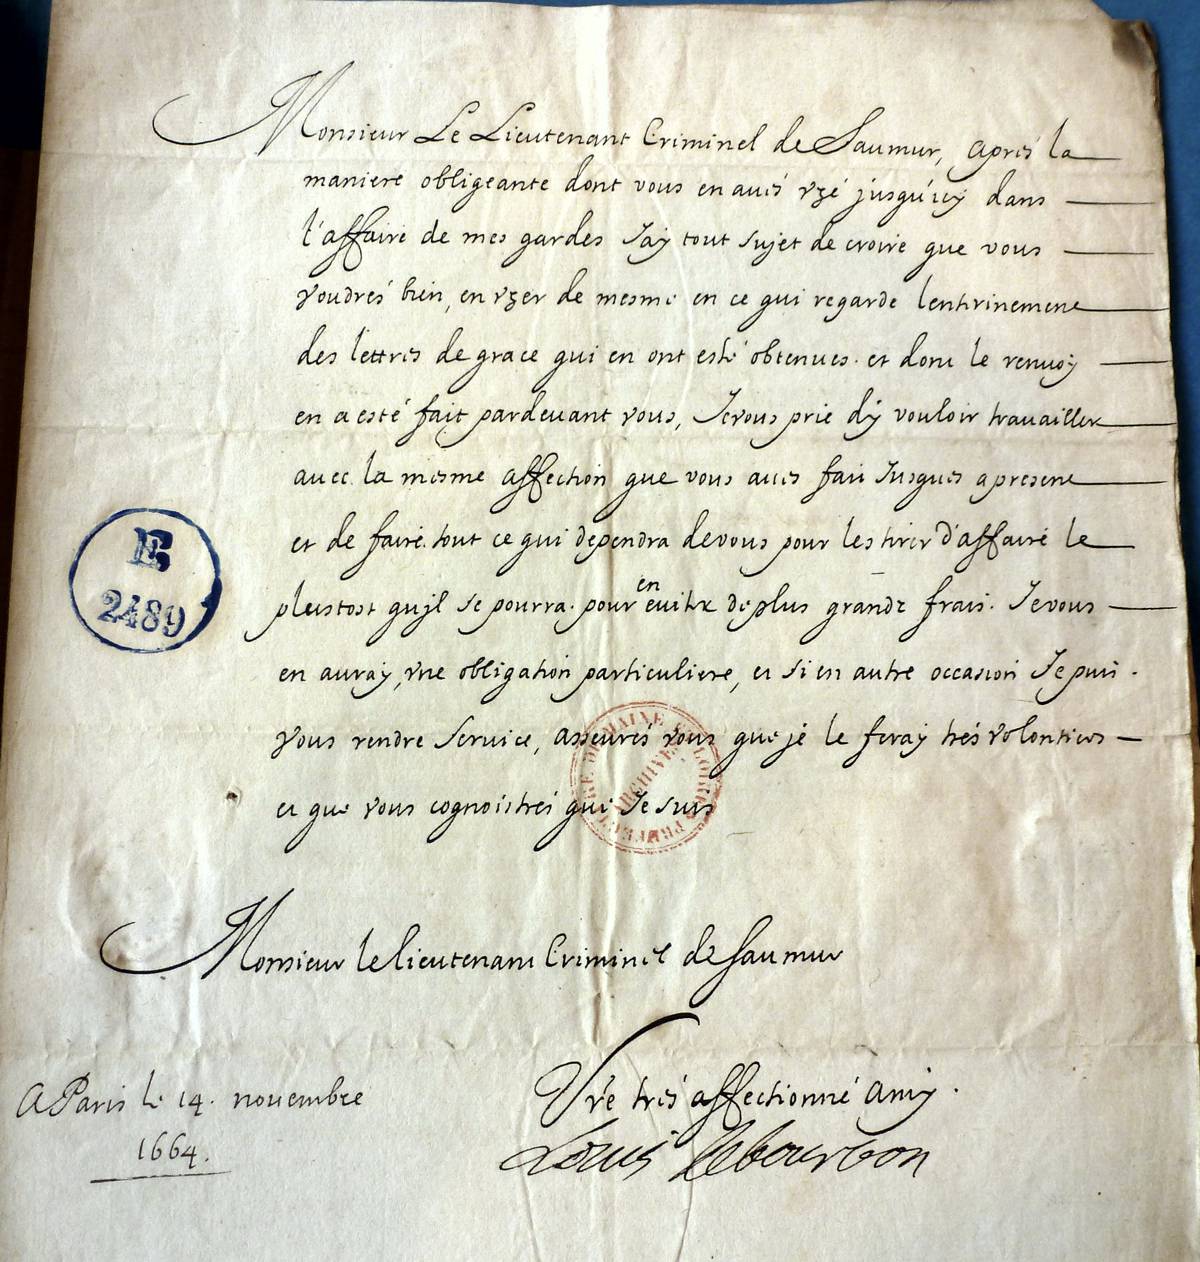 Monsieur Le Lieutenant Criminel de Saumur, aprés la
maniere obligeante dont vous en avés vzé jusqu'icy dans
l'affaire de mes gardes J'ay tout sujet de croire que vous
voudrés bien, en vzer de mesme en ce qui regarde lentirinement
des lettres de grace qui en ont esté obtenues. et dont le renvoy
en a esté fait pardevant vous, Je vous prie d'y vouloir travailler
avec la mesme affection que vous avés fait Jusques apresent
et de faire tout ce qui dependra devous pour les tirer d'affaire le
plustost qu'jl se pourra. pour en eviter de plus grande frais. Je vous
en auray, vne obligation particuliere, et si en autre occasion Je puis
vous rendre service, asseurés vous que je le feray trés volontiers
et que vous cognoistrés qui Je suis
Monsieur le lieutenant Criminel de Saumur
Vre trés affectionné amy.
Louis de bourbon
A Paris le 14. novembre
1664.
E
2489
PREFECTURE DE MAINE ET LOIRE
ARCHIVES